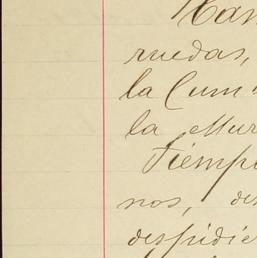 Han
ruedas,
la Cum
la Mur
Tiemp
nos, des
despidie